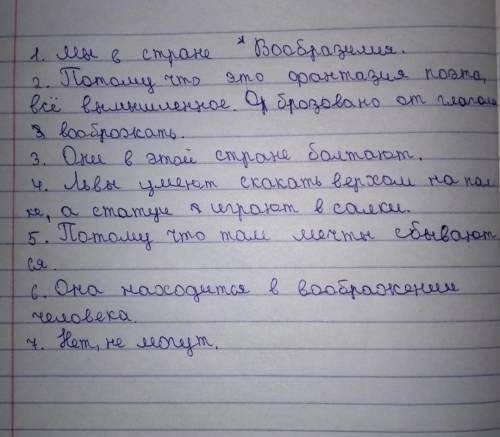 1. Мы в стране Вообразилия.
2. Потому что это фантазия поэта,
всё вымышленное. Образовано от глагол
а воображать.
3. Они в этой стране болтают.
4. Львы умеют скакать верхом на пал
ке, а статуи играют в салки.
5. Потому что там мечты сбывают
ся.
6. Она находится в воображении
человека.
7. Нет, не могут.